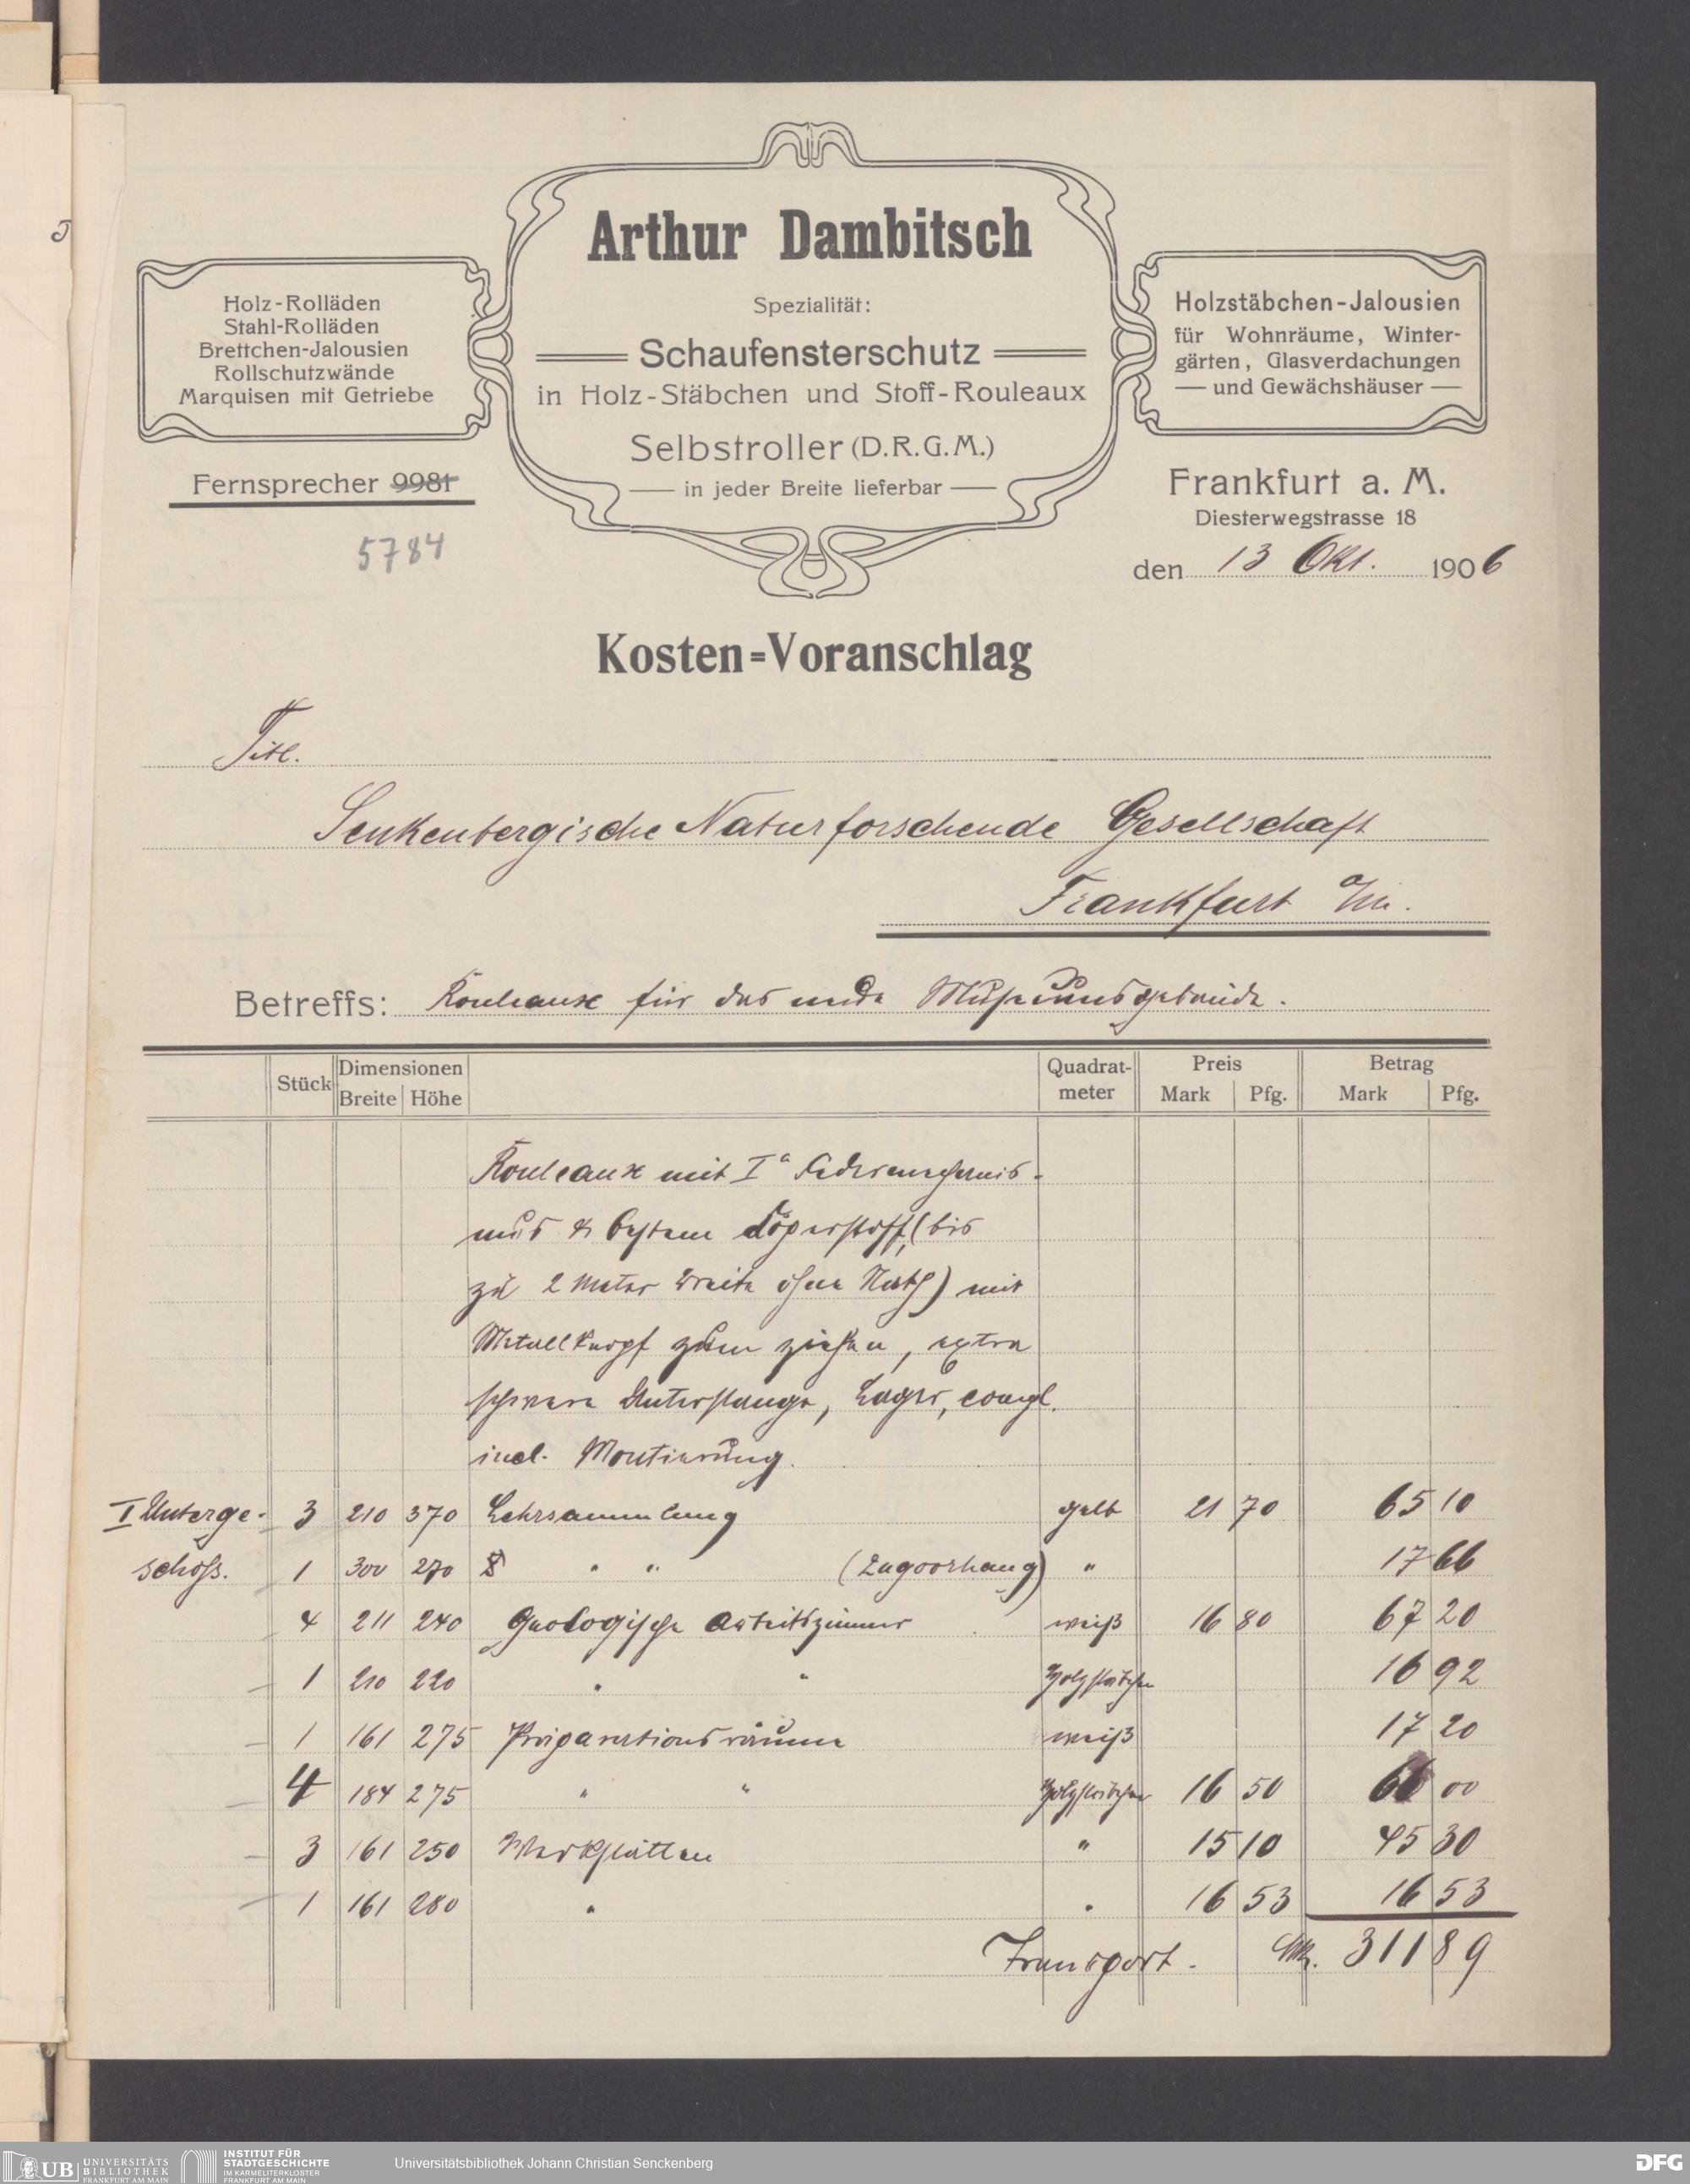 Arthur Dambitsch
Spezialität:
Schaufensterschutz
in Holz-Stäbchen und Stoff-Rouleaux
Selbstroller (D.R.G.M.)
in jeder Breite lieferbar
Holz-Rolläden
Stahl-Rolläden
Brettchen-Jalousien
Rollschutzwände
Marquisen mit Getriebe
Holzstäbchen-Jalousien
für Wohnräume, Winter-
gärten, Glasverdachungen
und Gewächshäuser
Fernsprecher 9981
5784
Frankfurt a. M.
Diesterwegstrasse 18
den 13 Okt. 1906
Kosten=Voranschlag
Titl.
Senkenbergische Naturforschende Gesellschaft
Frankfurt a/m.
Betreffs: Rouleaux für das neue Museumsgebäude.
Stück Dimensionen Breite Höhe Quadrat-meter Preis Mark Pfg. Betrag Mark Pfg.
Rouleaux mit Ia Federmechanis-
mus & bestem Köperstoff, (bis
zu 2 Meter Breite ohne Nath) mit
Metallknopf zum ziehen, extra
schwere Unterstange, Lager, compl.
incl. Montierung.
I Unterge- 3 210 370 Lehrsammlung gelb 21 70 65 10
schoß. 1 300 270 " " (Zugvorhang) " 17 66
4 211 240 Geologische Arbeitszimmer weiß 16 80 67 20
1 210 220 " " Holzstäbchen 16 92
1 161 275 Präparationsräume weiß 17 20
4 184 275 " " Holzstäbchen 16 50 66 00
3 161 250 Werkstätten " 15 10 45 30
1 161 280 " " 16 53 16 53
Transport. Mk. 311 89
UB UNIVERSITÄTS
BIBLIOTHEK
FRANKFURT AM MAIN
INSTITUT FÜR
STADTGESCHICHTE
IM KARMELITERKLOSTER
FRANKFURT AM MAIN
Universitätsbibliothek Johann Christian Senckenberg
DFG